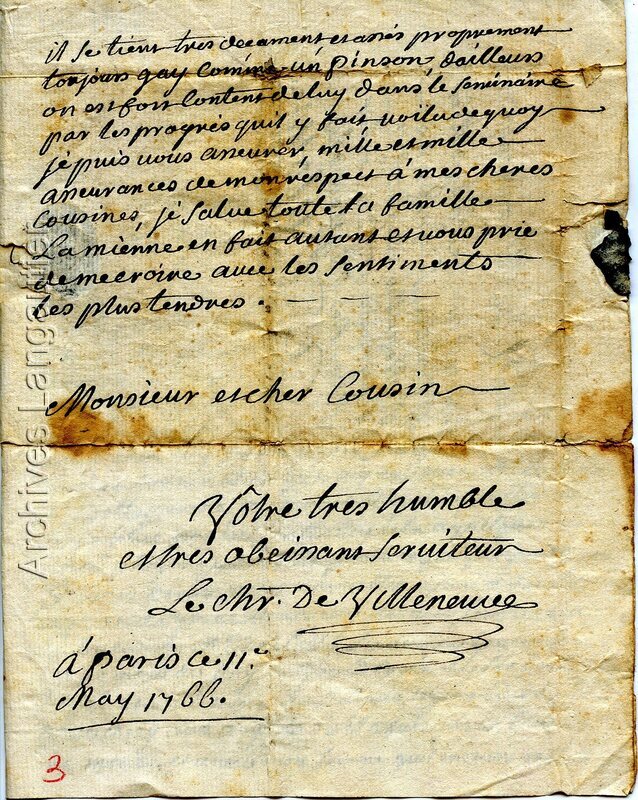 il se tient tres decament et assés proprement
toujours gay comme un pinson d'ailleurs
on est fort Content de luy dans le seminaire
par les progrés qu'il y fait voila de quoy
je puis vous assurer, mille et mille
assurances de mon réspect á mes cheres
Cousines, je salue toute la famille
La miènne en fait autant et vous prie
de me croire avec les sentiments
les plus tendres.
Monsieur et cher Cousin
Votre tres humble
et tres obeissant serviteur
Le chr. De Villeneuve
á paris ce 11e
May 1766.
3
Archives Langautier